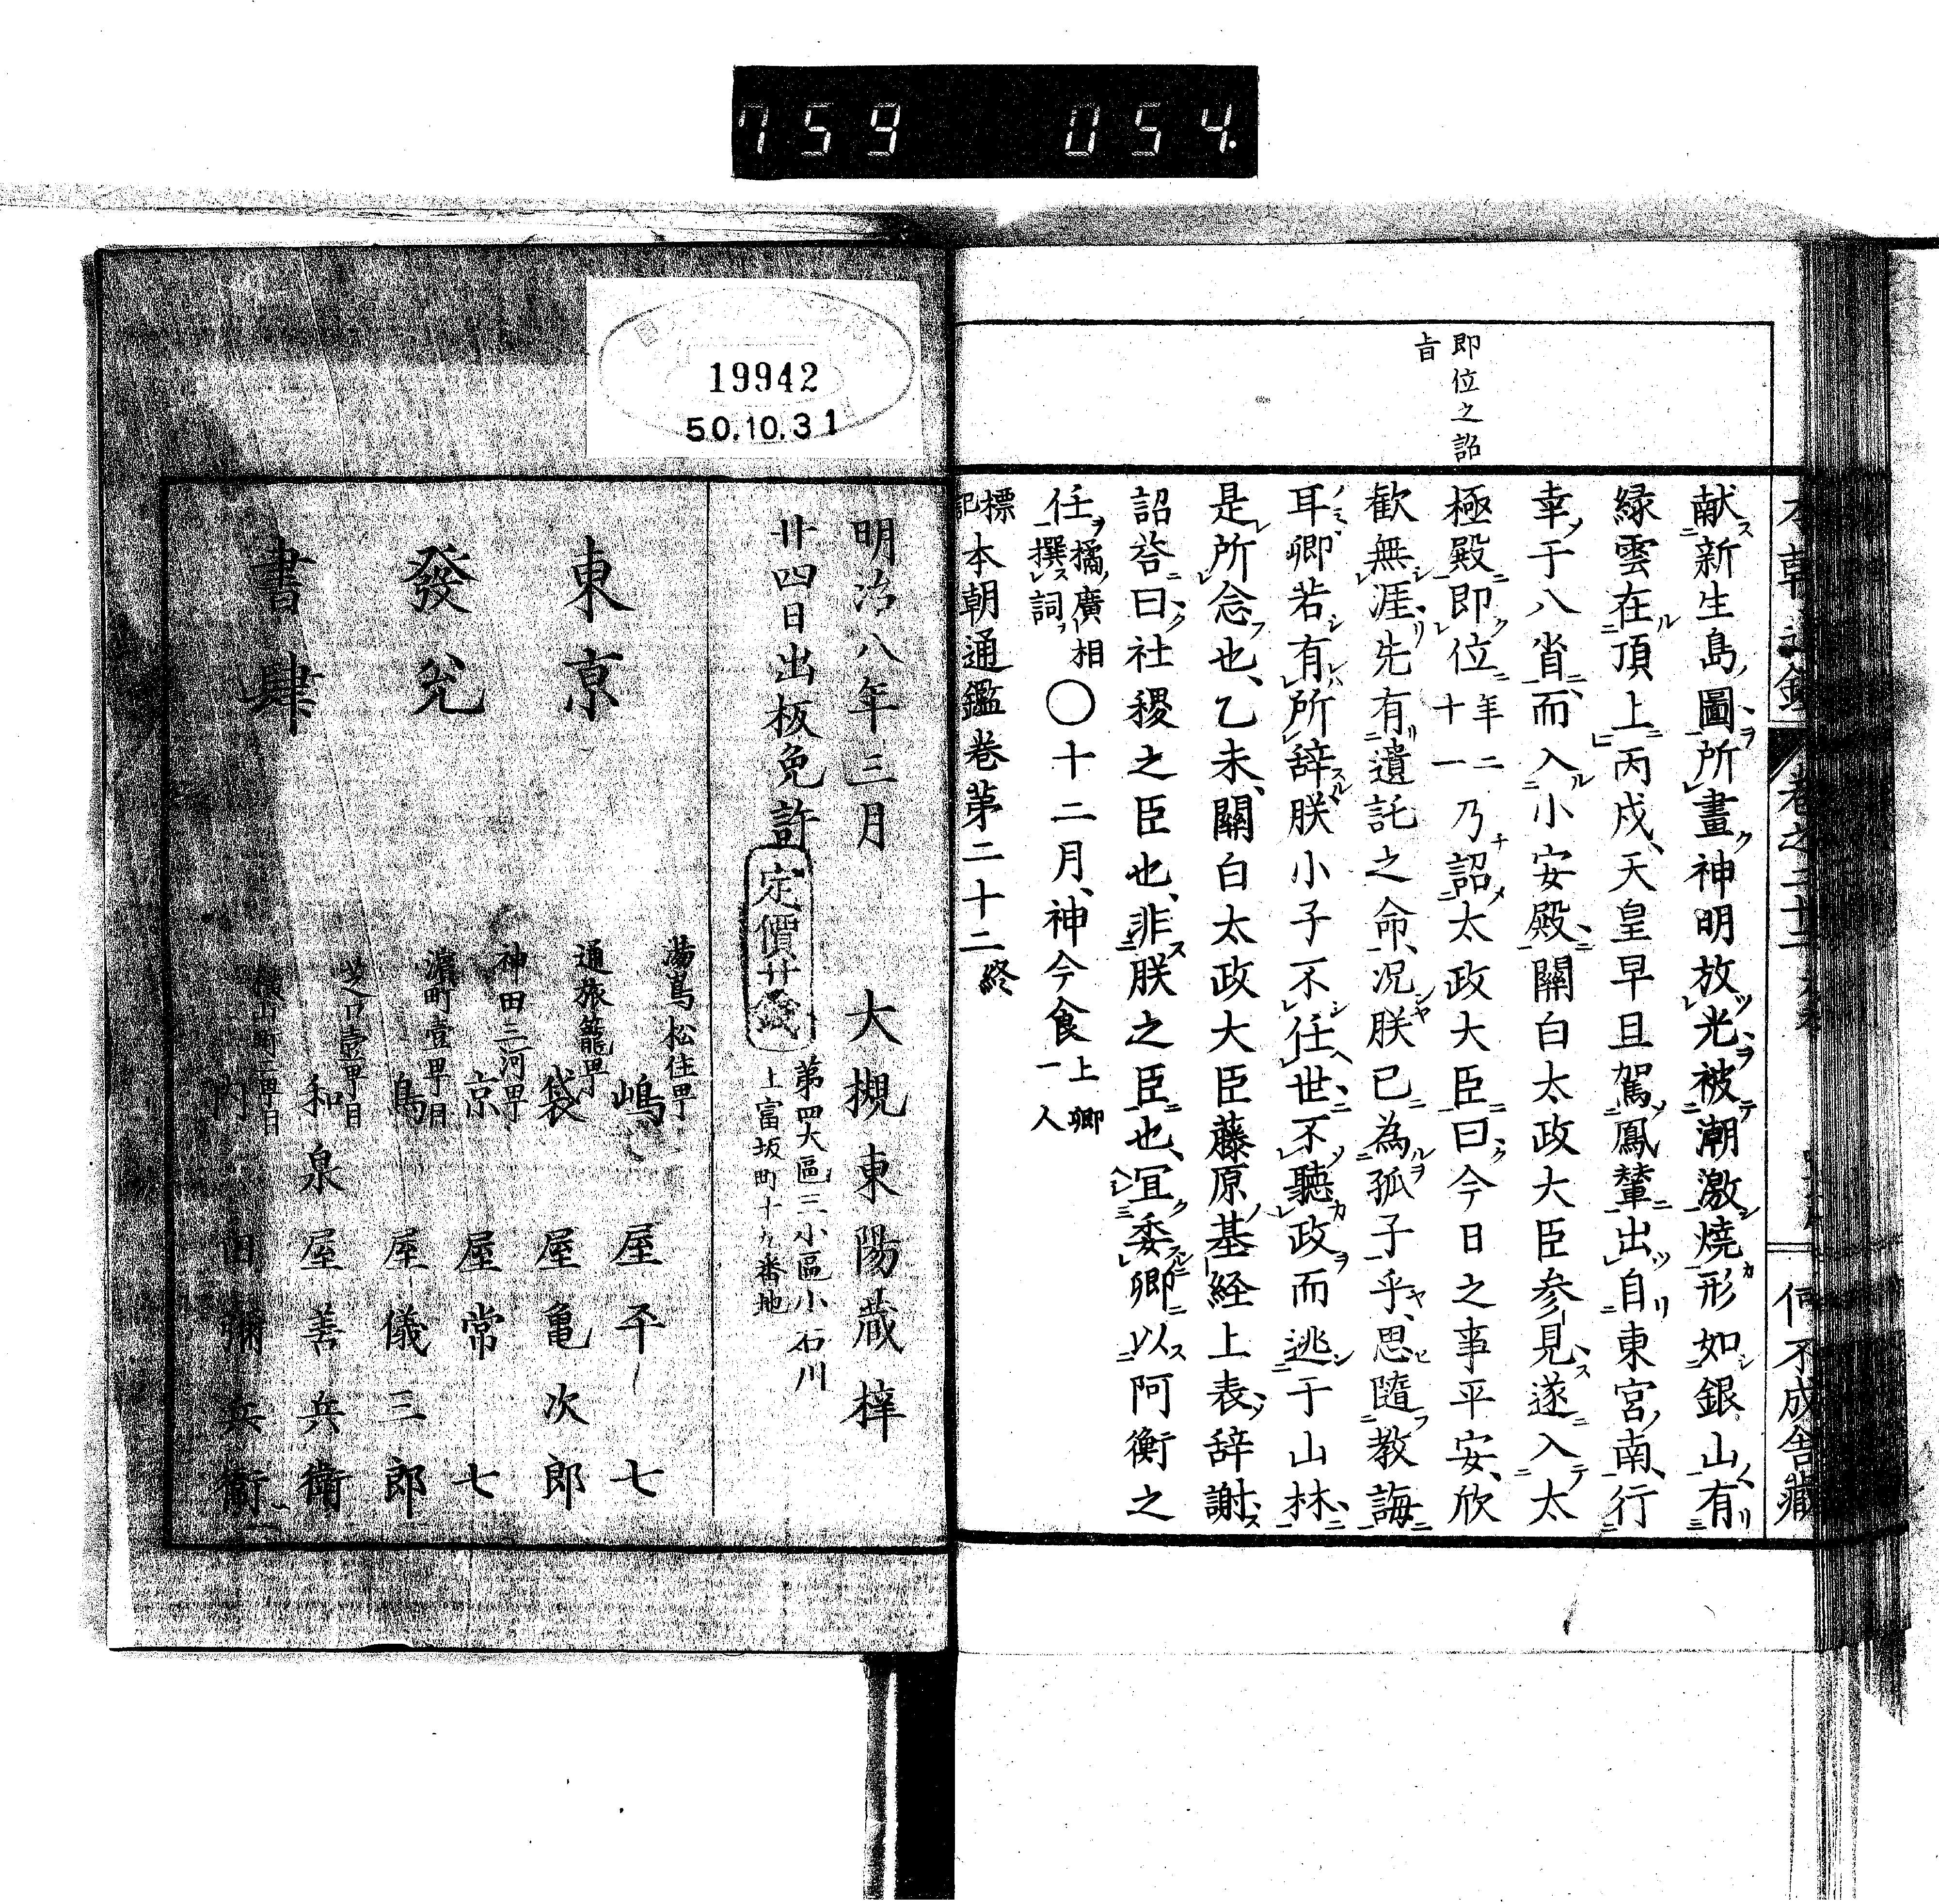 759 054.
本朝通鑑 卷之二十二 何不成舎藏
即位之詔
旨
献新生島圖所畫神明放光被潮激燒形如銀山有
緑雲在頂上丙戌、天皇早旦駕鳳輦出自東宮南、行
幸于八省而入小安殿、關白太政大臣参見遂入太
極殿即位年二十一乃詔太政大臣曰今日之事平安、欣
歡無涯、先有遺託之命、况朕已為孤子乎、思隨教誨
耳卿若有所辞朕小子不任世不聽政而逃于山林、
是所念也、乙未、關白太政大臣藤原基経上表辞謝
詔荅曰社稷之臣也、非朕之臣也、宜委卿以阿衡之
任橘廣相撰詞〇十二月、神今食上卿一人
標記本朝通鑑卷苐二十二終
明治八年三月 大槻東陽蔵梓
廿四日出板免許
定價廿錢
苐四大區三小區小石川
上富坂町十九番地
東京
發兌
書肆
湯島松住町 嶋屋平七
通旅籠町 袋屋亀次郎
神田三河町 京屋常七
濱町壹丁目 鳥屋儀三郎
芝口壹丁目 和泉屋善兵衛
横山町三丁目 内田彌兵衛
19942
50.10.31